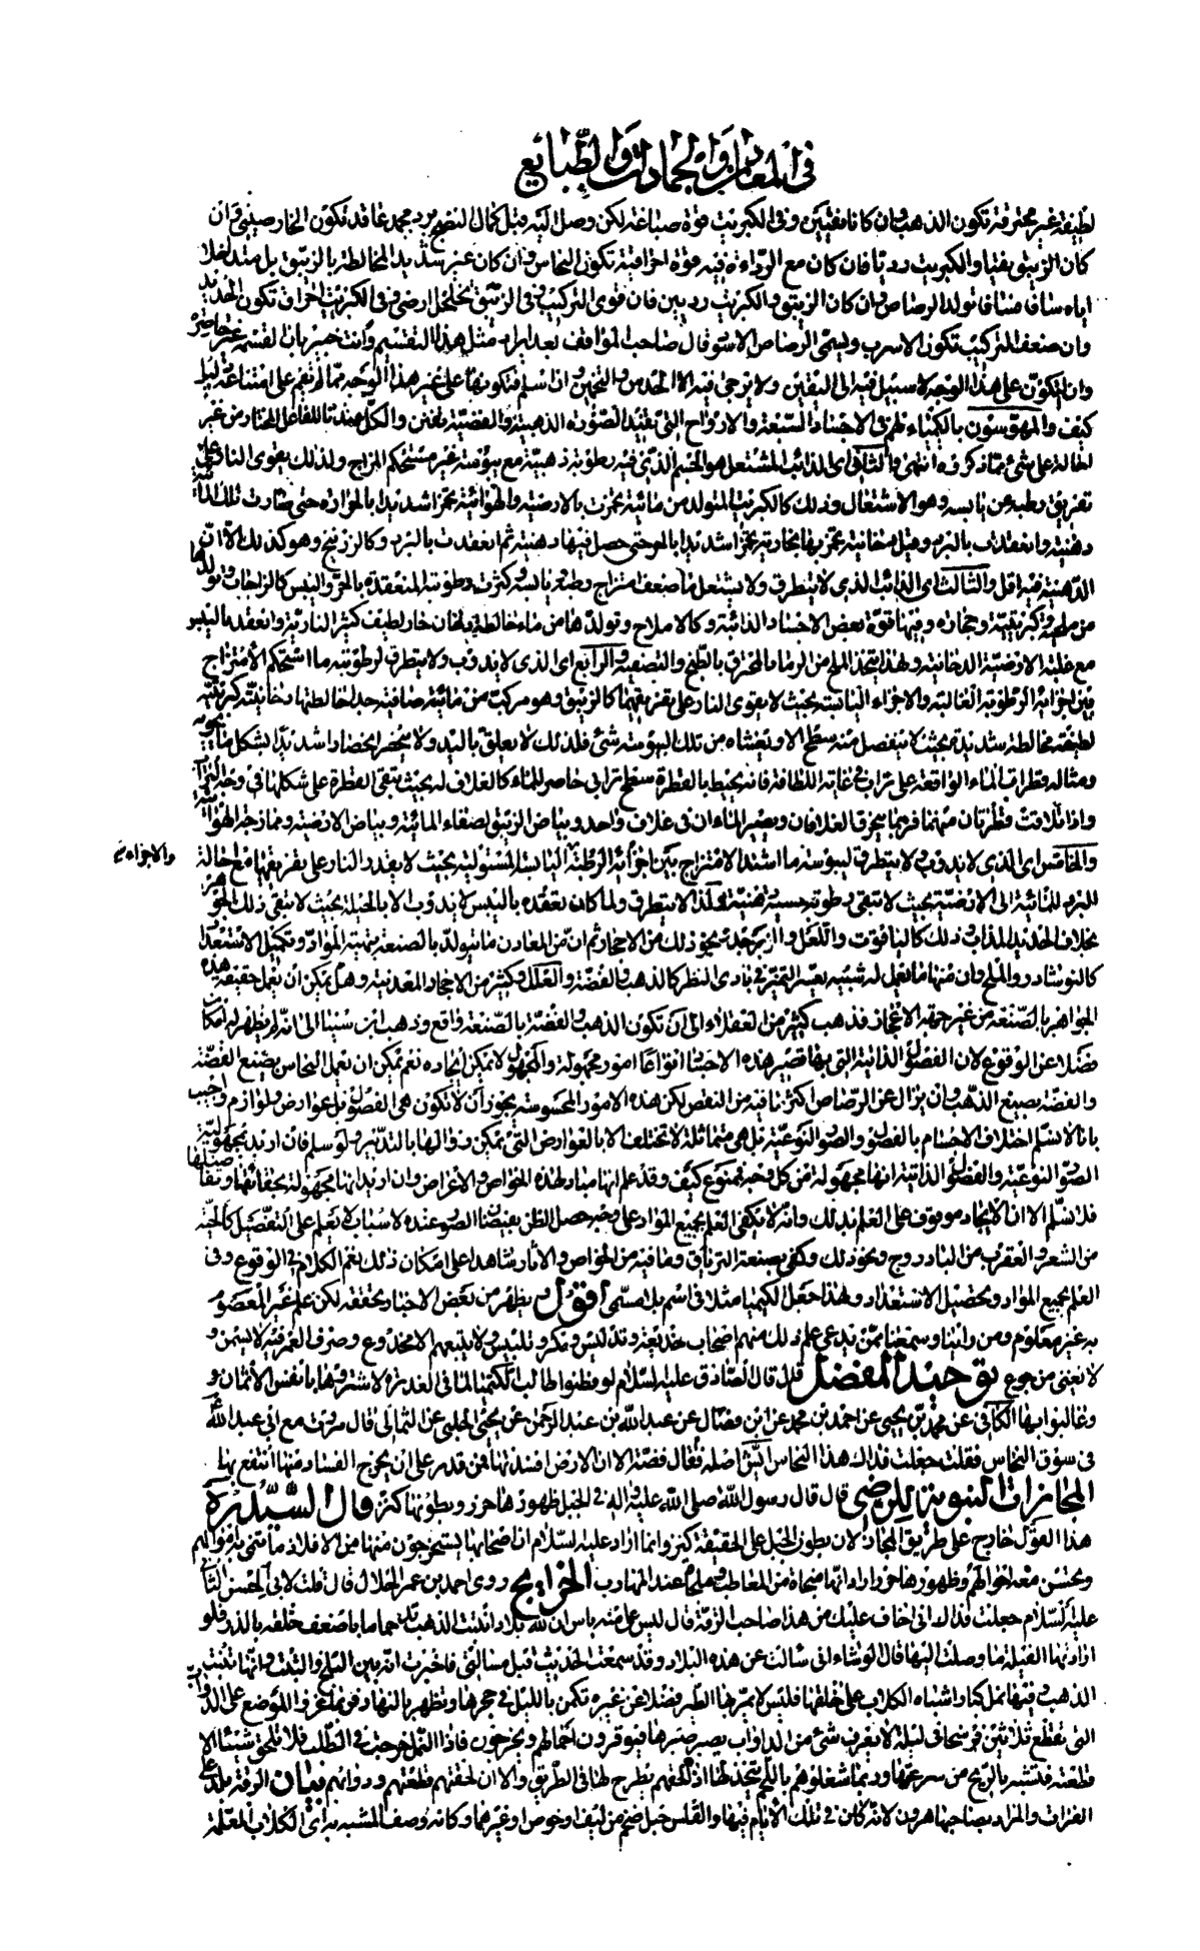 في المعادن والجمادات والطبايع
لطيفة غير محترقة تكون الذهب وان كانا نقيين وفي الكبريت قوة صباغة لكن وصل اليه قبل كمال النضج برد مجمد عاقد تكون الخارصيني وان
كان الزيبق نقيا والكبريت رديا فان كان مع الرداءة فيه قوة احراقية تكون النحاس وان كان غير شديد المخالطة بالزيبق بل متداخلا
اياه سافا فسافا تولد الرصاص وان كان الزيبق والكبريت رديين فان قوى التركيب وفي الزيبق تخلخل ارضي وفي الكبريت احراق تكون الحديد
وان ضعف التركيب تكون الاسرب ويسمى الرصاص الاسود قال صاحب المواقف بعد ايراد مثل هذا التقسيم وأنت خبير بان القسمة غير حاصرة
وان التكون على هذا الوجه لا سبيل فيه الى اليقين ولا يرجى فيه الا الحدس والتخمين وان سلم فتكونها على غير هذا الوجه مما لم يقم على امتناعه دليل
كيف والمهوسون بالكيمياء لهم في الاجساد السبعة والارواح التي تفيد الصورة الذهبية والفضية تفنن والكل عندنا للفاعل المختار من غير
احالة على شئ مما ذكروه انتهى والثاني اي الذائب المشتعل هو الجسم الذي فيه رطوبة ذهبية مع يبوسة غير مستحكم المزاج ولذلك يقوى النار على
تفريق رطبه عن يابسه وهو الاشتعال وذلك كالكبريت المتولد من مائية تخمرت بالارضية والهوائية تخمرا شديدا بالحرارة حتى صارت تلك المائية
دهنية وانعقدت بالبرد وقيل دخانية تخمر بها بخارية تخمرا شديدا بالحر حتى حصل فيها دهنية ثم انعقدت بالبرد وكالزرنيخ وهو كذلك الا ان
الدهنية فيه اقل والثالث اي الذائب الذي لا يتطرق ولا يشتعل ما ضعف امتزاج رطبه يابسه وكثرت رطوبته المنعقدة بالحر واليبس كالزاجات وتولدها
من ملحية وكبريتية وحجارة وفيها قوة بعض الاجساد الذائبة وكالاملاح وتولدها من ماء خالطه دخان حار لطيف كثير النارية وانعقد باليبس
مع غلبة الارضية الدخانية ولهذا يتخذ الملح من الرماد المحترق بالطبخ والتصفية والرابع اي الذي لا يذوب ولا يتطرق لرطوبته ما استحكم الامتزاج
بين اجزائه الرطوبة الغالبة والاجزاء اليابسة بحيث لا يقوى النار على تفريقهما كالزيبق وهو مركب من مائية صافية جدا خالطها دخانية كبريتية
لطيفة مخالطة شديدة بحيث لا ينفصل منه سطح الا ويغشاه من تلك اليبوسة شئ فلذلك لا يعلق باليد ولا ينحصر انحصارا شديدا بشكل ما يحويه
ومثاله قطرات الماء الواقعة على تراب في غاية اللطافة فانه يحيط بالقطرة سطح ترابي حاصر للماء كالغلاف له بحيث تبقى القطرة على شكلها في وجه التراب
واذا تلاقت قطرتان منهما فربما ينخرق الغلافان ويصير الماءان في غلاف واحد وبياض الزيبق لصفاء المائية وبياض الارضية وممازجة الهوائية
والخامس اي الذي لا يذوب ولا يتطرق ليبوسته ما اشتد الامتزاج بين اجزائه الرطبة اليابسة المستولية بحيث لا يقدر النار على تفريقها مع احالة
والاجزاء
البرد للمائية الى الارضية بحيث لا تبقى رطوبة حسية دهنية ولذا لا يتطرق ولما كان تعقده باليبس لا يذوب الا بالحيلة بحيث لا تبقى ذلك الجوهر
بخلاف الحديد المذاب وذلك كالياقوت واللعل والزبرجد ونحو ذلك من الاحجار ثم ان من المعادن ما يتولد بالصنعة بتهية المواد وتكميل الاستعداد
كالنوشادر والملح وان منها ما يعمل له شبيه يعسر التميز في بادي النظر كالذهب والفضة واللعل وكثير من الاحجار المعدنية وهل يمكن ان يعمل حقيقة هذه
الجواهر بالصنعة من غير جهة الاعجاز فذهب كثير من العقلاء الى ان تكون الذهب والفضة بالصنعة واقع وذهب ابن سينا الى انه لم يظهر له امكان
فضلا عن الوقوع لان الفصول الذاتية التي بها تصير هذه الاجساد انواعا امور مجهولة والمجهول لا يمكن ايجاده نعم يمكن ان يعمل النحاس بصبغ الفضة
والفضة بصبغ الذهب وان يزال عن الرصاص اكثر ما فيه من النقص لكن هذه الامور المحسوسة يجوز ان لا تكون هي الفصول بل عوارض ولوازم واجيب
بانا لا نسلم اختلاف الاجسام بالفصول والصور النوعية بل هي متماثلة لا تختلف الا بالعوارض التي يمكن زوالها بالتدبير ولو سلم فان اريد بمجهولية
الصور النوعية والفصول الذاتية انها مجهولة من كل وجه فممنوع كيف وقد علم انها مباد لهذه الخواص والاعراض وان اريد انها مجهولة بحقائقها وتفاصيلها
فلا نسلم الا ان الايجاد موقوف على العلم بذلك وانه لا يكفي العلم بجميع المواد على وجه حصل الظن بفيضان الصور عنده لاسباب لا يعلم على التفصيل كالحية
من الشعر والعقرب من البادروج ونحو ذلك وكفى بصنعة الترياق وما فيه من الخواص والاثار شاهدا على امكان ذلك نعم الكلام في الوقوع وفي
العلم بجميع المواد وتحصيل الاستعداد ولهذا جعل الكيميا مثلا في اسم بلا مسمى اقول ويظهر من بعض الاخبار تحققه لكن علم غير المعصوم
به غير معلوم ومن راينا وسمعنا ممن يدعي علم ذلك منهم اصحاب خديعة وتدليس ومكر وتلبيس ولا يتبعهم الا مخدوع وصرف العمر فيه لا يسمن و
لا يغني من جوع توحيد المفضل قال قال الصادق عليه السلام لو فطنوا طالب الكيميا لما في العذرة لاشتروها بانفس الاثمان و
وغالبوا بها الكافي عن محمد بن يحيى عن احمد بن محمد عن ابن فضال عن عبد الله بن عبد الرحمن عن يحيى الحلبي عن الثمالي قال مررت مع ابي عبد الله
في سوق النحاس فقلت جعلت فداك هذا النحاس ايش اصله فقال فضة الا ان الارض افسدتها فمن قدر على ان يخرج الفساد منها انتفع بها
المجازات النبوية للرضي قال قال رسول الله صلى الله عليه واله في الخيل ظهورها حرز وبطونها كنز قال السيد ره
هذا القول خارج على طريق المجاز لان بطون الخيل على الحقيقة كنز وانما اراد عليه السلام ان اصحابها يستخرجون منها من الافلاذ ما تنمى به اموالهم
ويحسن معه احوالهم وظهورها حرز اراد انها منجاة من المعاطب وملجأ عند المهارب الخرايج روى احمد بن عمر الحلال قال قلت لابي الحسن الثاني
عليه السلام جعلت فداك اني اخاف عليك من هذا صاحب الرقة قال ليس علي منه باس ان لله بلادا تنبت الذهب قد حماها باضعف خلقه بالذر فلو
ارادتها الفيلة ما وصلت اليها قال الوشاء اني سالت عن هذه البلاد وقد سمعت الحديث قبل مسالتي فاخبرت انه بين البلخ والتبت وانها تنبت
الذهب وفيها نمل كبار اشباه الكلاب على خلقها فليس لا يمر بها الطير فضلا عن غيره تكمن بالليل في جحرها وتظهر بالنهار فربما غزوا الموضع على الدواب
التي تقطع ثلاثين فرسخا في ليلة لا يعرف شئ من الدواب يصبر صبرها فيوقرون احمالهم ويخرجون فاذا النمل خرجت في الطلب فلا تلحق شيئا الا
قطعته فتشبه بالريح من سرعتها وربما شغلوهم باللحم يتخذ لها اذا لحقتهم يطرح لها في الطريق والا ان لحقتهم قطعتهم ودوابهم بيان الرقة بلد على
الفرات والمراد بصاحبها هرون لانه كان في تلك الايام فيها والقلس حبل ضخم من ليف او خوص او غيرهما وكانه وصف المشبه به اي الكلاب المعلمة